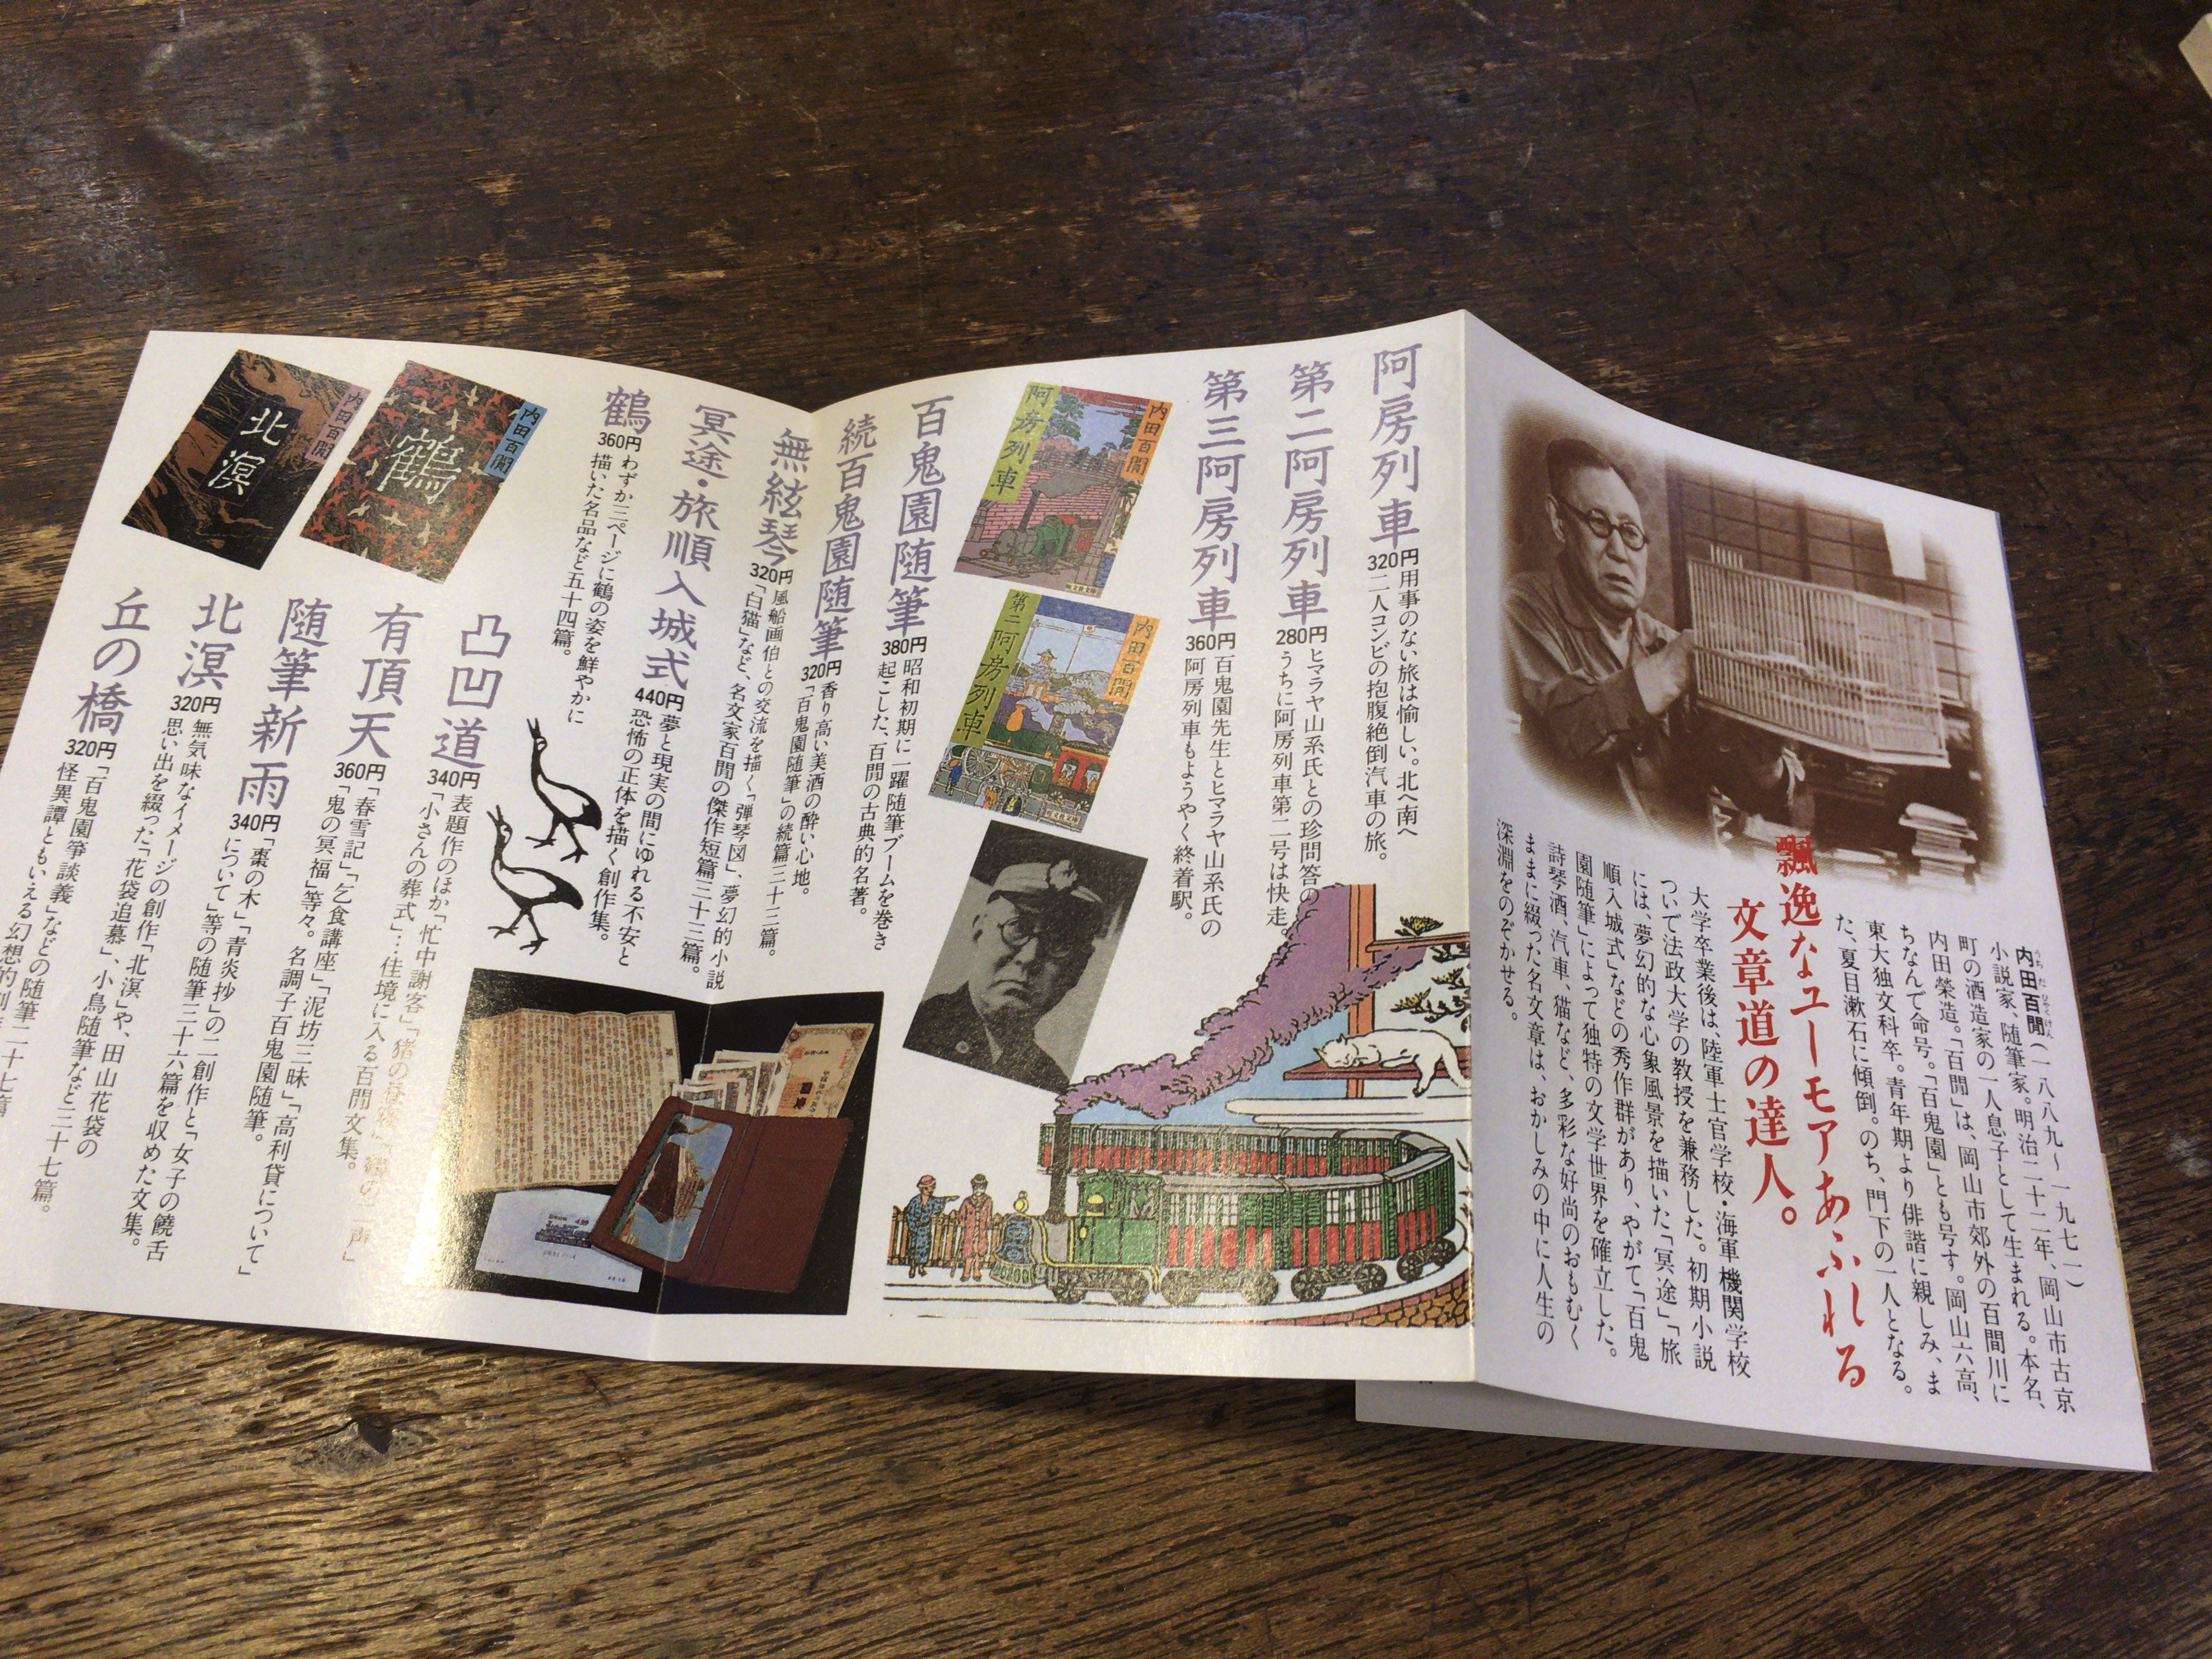 飄逸なユーモアあふれる
文章道の達人。
内田百閒(一八八九〜一九七一)
うちだひゃっけん
小説家、随筆家。明治二十二年、岡山市古京
町の酒造家の一人息子として生まれる。本名、
内田榮造。「百閒」は、岡山市郊外の百間川に
ちなんで命号。「百鬼園」とも号す。岡山六高、
東大独文科卒。青年期より俳諧に親しみ、ま
た、夏目漱石に傾倒。のち、門下の一人となる。
大学卒業後は、陸軍士官学校・海軍機関学校
ついで法政大学の教授を兼務した。初期小説
には、夢幻的な心象風景を描いた「冥途」「旅
順入城式」などの秀作群があり、やがて「百鬼
園随筆」によって独特の文学世界を確立した。
詩琴酒、汽車、猫など、多彩な好尚のおもむく
ままに綴った名文章は、おかしみの中に人生の
深淵をのぞかせる。
阿房列車
320円
用事のない旅は愉しい。北へ南へ
二人コンビの抱腹絶倒汽車の旅。
第二阿房列車
280円
ヒマラヤ山系氏との珍問答の
うちに阿房列車第二号は快走。
第三阿房列車
360円
百鬼園先生とヒマラヤ山系氏の
阿房列車もようやく終着駅。
内田百閒
阿房列車
内田百閒
第二阿房列車
百鬼園随筆
380円
昭和初期に一躍随筆ブームを巻き
起こした、百閒の古典的名著。
続百鬼園随筆
320円
香り高い美酒の酔い心地。
「百鬼園随筆」の続篇三十三篇。
無絃琴
320円
風船画伯との交流を描く「弾琴図」、夢幻的小説
「白猫」など、名文家百閒の傑作短篇三十三篇。
冥途・旅順入城式
440円
夢と現実の間にゆれる不安と
恐怖の正体を描く創作集。
鶴
360円
わずか三ページに鶴の姿を鮮やかに
描いた名品など五十四篇。
内田百閒
鶴
内田百閒
北溟
凸凹道
340円
表題作のほか「忙中謝客」「猪の昼寝」「
「小さんの葬式」…佳境に入る百閒文集。
有頂天
360円
「春雪記」「乞食講座」「泥坊三昧」「高利貸について」
「鬼の冥福」等々。名調子百鬼園随筆。
随筆新雨
340円
「棗の木」「青炎抄」の二創作と「女子の饒舌
について」等の随筆三十六篇を収めた文集。
北溟
320円
無気味なイメージの創作「北溟」や、田山花袋の
思い出を綴った「花袋追慕」、小鳥随筆など三十七篇。
丘の橋
320円
「百鬼園箏談義」などの随筆二十七篇
怪異譚ともいえる幻想的創